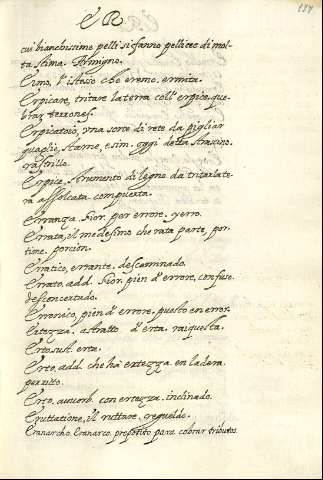 ER
189
cui bianchissime pelli si fanno pelliccie di mol-
ta stima. Armigno.
Ermo, l'istesso che eremo, ermita.
Erpicare, tritare la terra coll' erpice, que-
brar terrones.
Erpicatoio, una sorte di rete da pigliar
quaglie, starne, e sim. oggi detta strascino.
rastrillo.
Erpice. strumento di legno da tritar la te-
rra assolcata comuesta.
Erranza. fior. por errore, yerro.
Errata, il medesimo che rata parte, por-
tione, porcion.
Erratico, errante, descaminado.
Errato, add. fior. pien d'errore, confuso.
desconcertado.
Erronico, pien d'errore. puesto en error.
Ertezza. astratto d'erta, raiquesta.
Erto, sust. erta.
Erto, add. che hà ertezza. en ladera.
Erto, avverb. con ertezza, inclinado.
Eruttatione, il ruttare, regueldo.
Eranarcho, Eranarco, preposito para cobrar tributos.